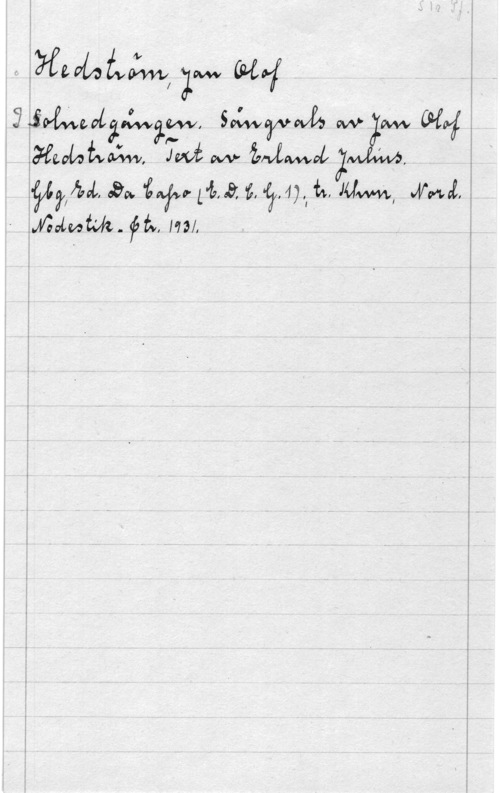 Hedström, Jan Olof
Solnedgången. Sångvals av Jan Olof
Hedström. Text av Erland Julius.
Gbg, Ed. Da Capo (E. D. C. G. 1); tr. Khvn, Nord.
Nodestik. Ptr. 1931.